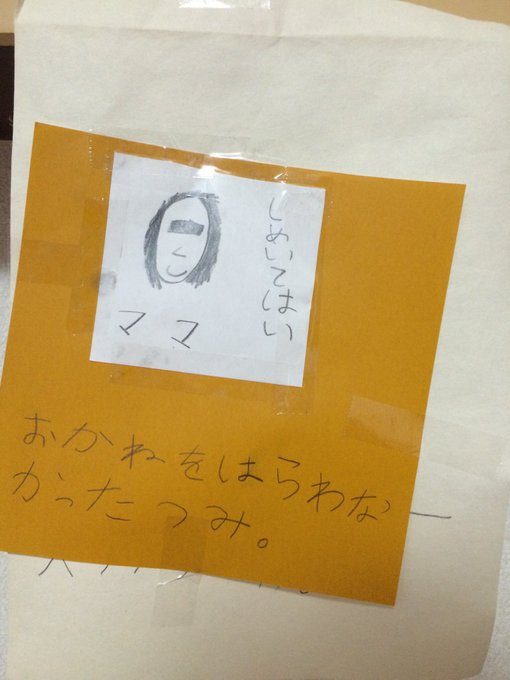 しめいてはい
ママ
おかねをはらわな
かったつみ。